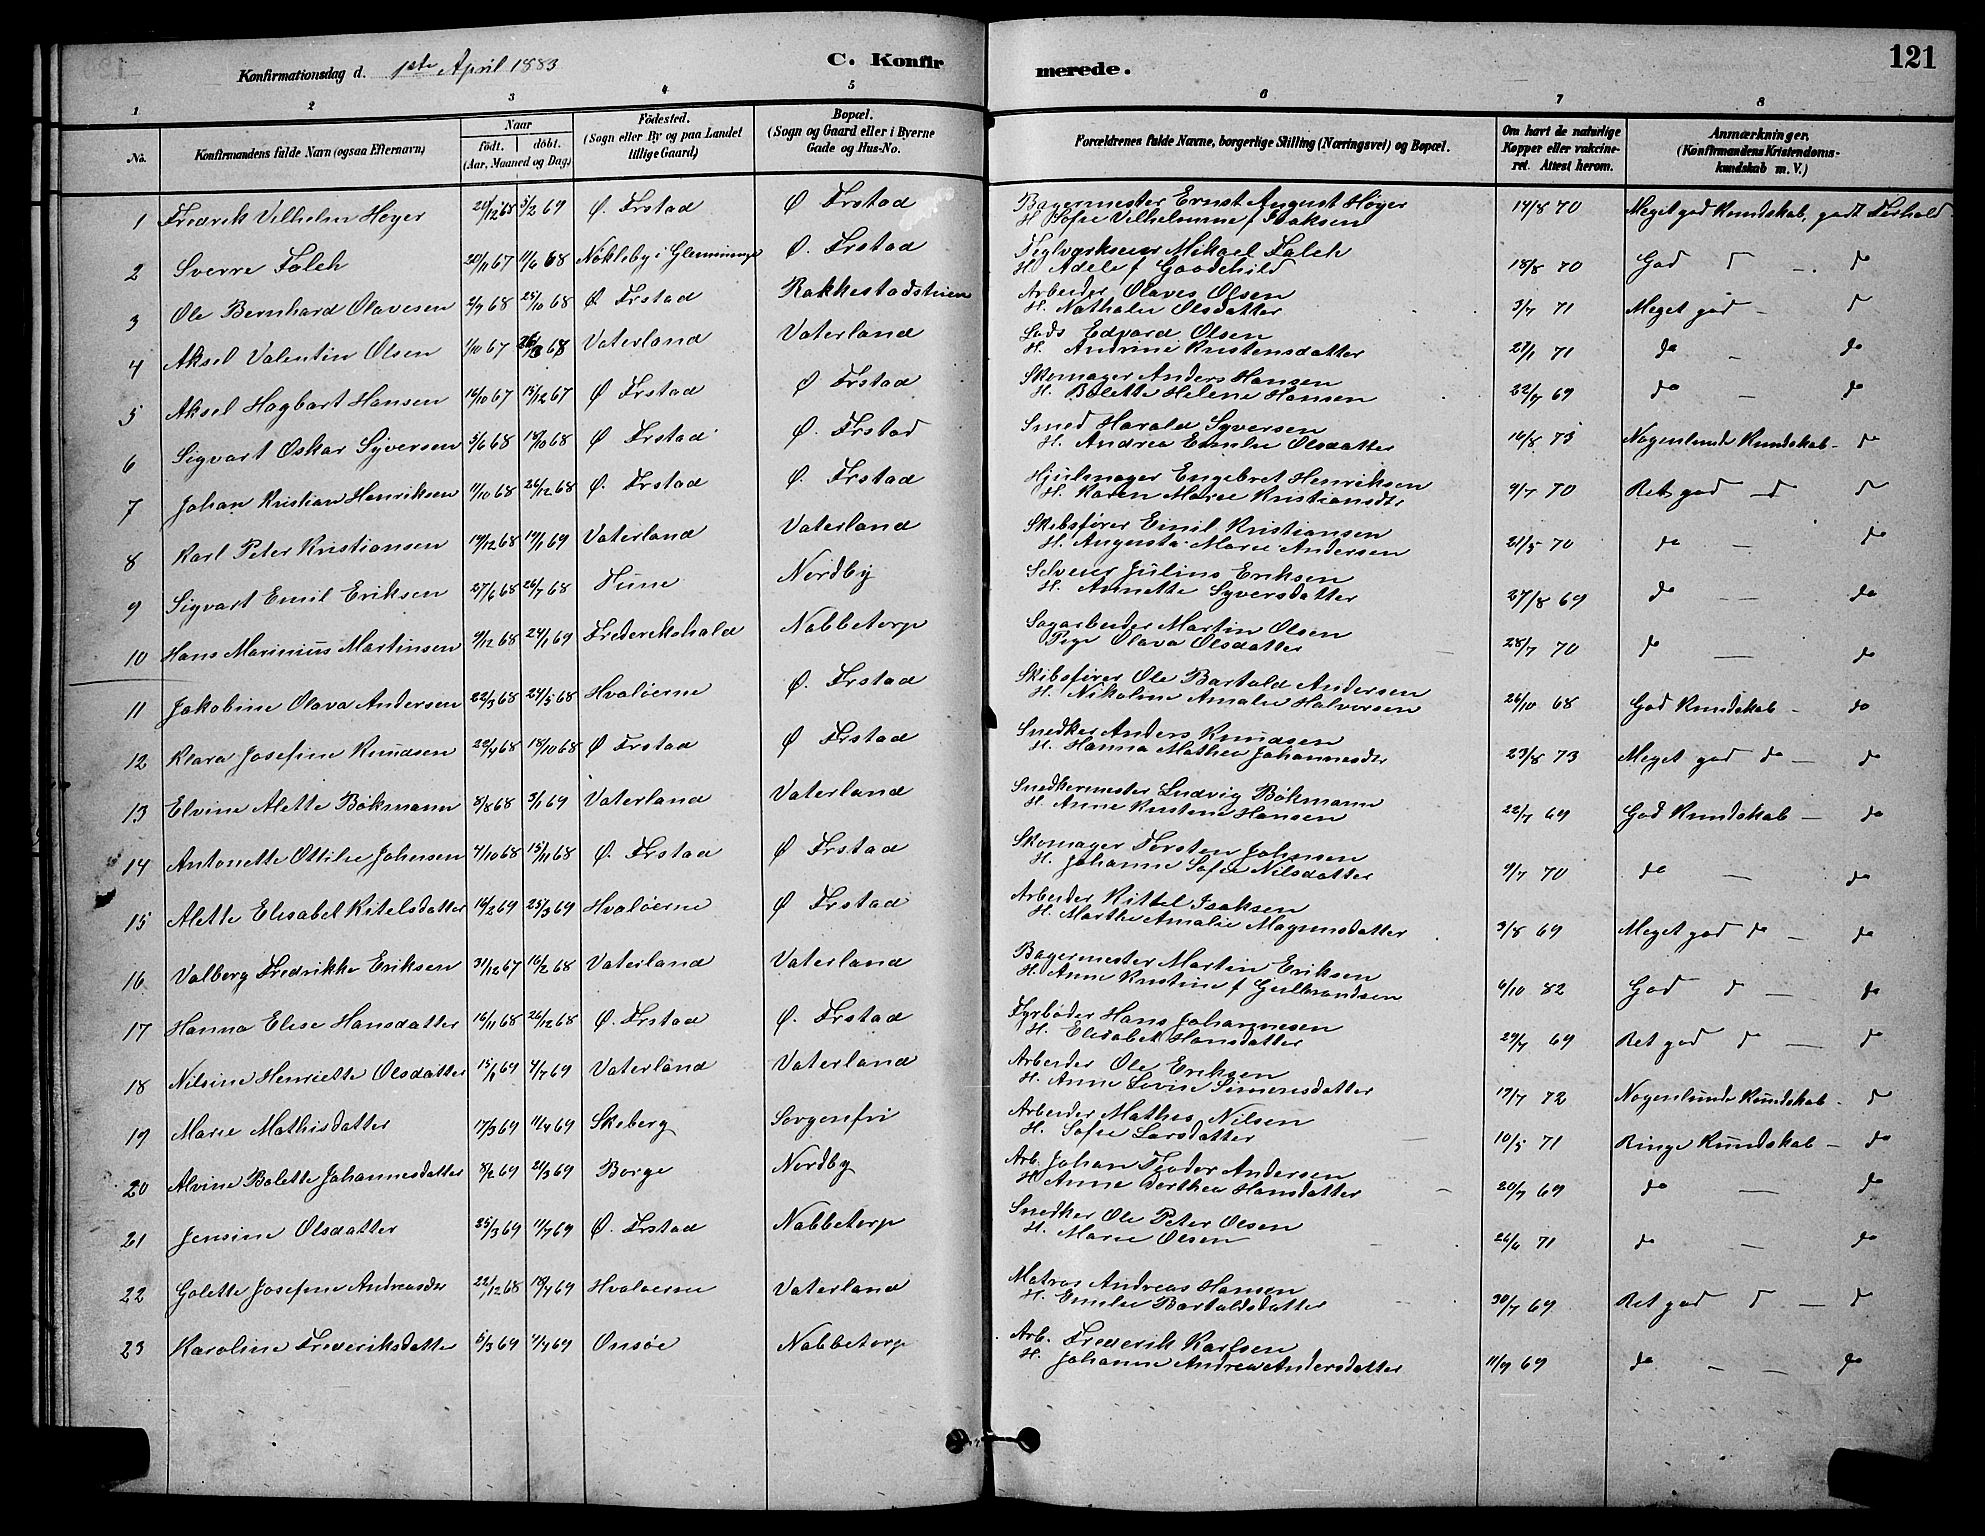 Konfirmationsdag d. 1ste April 1883 C. Konfirmerede. 121
1 2 3 4 5 6 7 8
No. Konfirmandens fulde Navn (ogsaa Efternavn) Naar født. døbt. (Aar, Maaned og Dag) Fødested. (Sogn eller By og paa Landet tillige Gaard) Bopæl. (Sogn og Gaard eller i Byerne Gade og Hus-No. Forældrenes fulde Navne, borgerlige Stilling (Næringsvei) og Bopæl. Om havt de naturlige Kopper eller vakcineret. Attest herom. Anmærkninger. (Konfirmandens Kristendomskundskab m. V.)
1 Fredrik Vilhelm Høyer 3/2 69 Ø. Frstad Ø Frstad Bagermester Ernst August Høyer 14/8 70 Meget god Kundskab, godt Forhold
H. Sofie Vilhelmine f Isaksen
2 Sverre Falch 20/11 67 11/6 68 Nøkleby i Glemminge Ø. Frstad Teglværkseier Mikael Falch 18/8 70 God d - do
H. Adele f Goodchild
3 Ole Bernhard Olavesen 2/7 68 25/10 68 Ø Frstad Rakkestadstuen Arbeider Olaves Olsen 3/7 71 Meget god - d
H. Nathalie Olsdatter
4 Aksel Valentin Olsen 1/10 67 68 Vaterland Vaterland Lods Edvard Olsen 27/1 71 do - do
H. Andrine Kristensdatter
5 Aksel Hagbart Hansen 16/10 67 15/12 67 Ø Frstad Ø Frstad Skomager Anders Hansen 22/7 69 do - do
H. Bolette Helene Hansen
6 Sigvart Oskar Syversen 5/6 68 18/10 68 Ø Frstad Ø. Frstad Smed Harald Syversen 16/8 73 Nogenlunde Kundskab - do
H. Andrea Emilie Olsdatter
7 Johan Kristian Henriksen 11/10 68 26/12 68 Ø. Frstad Ø. Frstad Hjulmager Engebret Henriksen 9/7 70 Ret god - d d
H. Karen Marie Kristiansdtr
8 Karl Peter Kristiansen 19/12 68 19/1 69 Vaterland Vaterland Skibsfører Emil Kristiansen 21/5 70 do - do
H. Augusta Marie Andersen
9 Sigvart Emil Eriksen 27/6 68 26/7 68 Tune Nordby Selveier Julius Eriksen 27/8 69 do - do
H. Annette Syversdatter
10 Hans Marinius Martinsen 9/12 68 24/1 69 Frederikshald Nabbetorp Sagarbeider Martin Olsen 28/7 70 do - do
Pige Olava Olsdatter
11 Jakobine Olava Andersen 22/3 68 24/5 68 Hvaløerne Ø. Frstad Skibsfører Ole Bartold Andersen 26/10 68 God Kundskab - do
H. Nikoline Amalie Halvorsen
12 Klara Josefine Knudsen 22/4 68 18/10 68 Ø Frstad Ø Frstad Snedker Anders Knudsen 23/8 73 Meget god do - do
H. Hanna Mathea Johannesdtr
13 Elvine Alette Bøkmann 3/8 68 3/1 69 Vaterland Vaterland Snedkermester Ludvig Bøkmann 22/7 69 God Kundskab - do
H. Anne Kristine Hansen
14 Antonette Ottilie Johnsen 4/10 68 15/11 68 Ø. Frstad Ø Frstad Skomager Torsten Johnsen 9/7 70 do - do
H. Johanne Sofie Nilsdatter
15 Alette Elisabet Kitelsdatter 14/2 69 25/3 69 Hvaløerne Ø Frstad Arbeider Kittel Isaksen 3/8 69 Meget god do - do
H. Marthe Amalie Magnusdatter
16 Valborg Fredrikke Eriksen 31/12 67 16/2 68 Vaterland Vaterland Bagermester Martin Eriksen 6/10 82 God d - do
H. Anne Kristine f Gulbrandsen
17 Hanna Elise Hansdatter 16/11 68 26/12 68 Ø. Frstad Ø. Frstad Fyrbøder Hans Johannesen 29/7 69 Ret god do - do
H. Elisabet Hansdatter
18 Nilsine Henriette Olsdatter 69 4/7 69 Vaterland Vaterland Arbeider Ole Eriksen 17/7 72 Nogenlunde Kundskab - d
H. Anne Lovise Simensdatter
19 Marie Mathisdatter 17/3 69 11/4 69 Skeberg Sorgenfri Arbeider Mathis Nilsen 10/5 71 Ringe Kundskab - do
H. Sofie Larsdatter
20 Alvine Bolette Johannesdatter 8/2 69 21/3 69 Borge Nordby Arb. Johan Teodor Andersen 20/7 69 do - do
H. Anne Dorthea Hansdatter
21 Jensine Olsdatter 25/3 69 11/7 69 Ø. Frstad Nabbetorp Snedker Ole Peter Olsen 26/6 71 do - do
H. Marie Olsen
22 Golette Josefine Andreasdtr 22/12 68 18/4 69 Hvaløerne Vaterland Matros Andreas Hansen 30/7 69 Ret god d - d
H. Emilie Bartoldsdatter
23 Karoline Frederiksdatter 5/3 69 4/7 69 Onsøe Nabbetorp Arb. Frederik Karlsen 11/9 69 do - do
H. Johanne Andrea Andersdatter